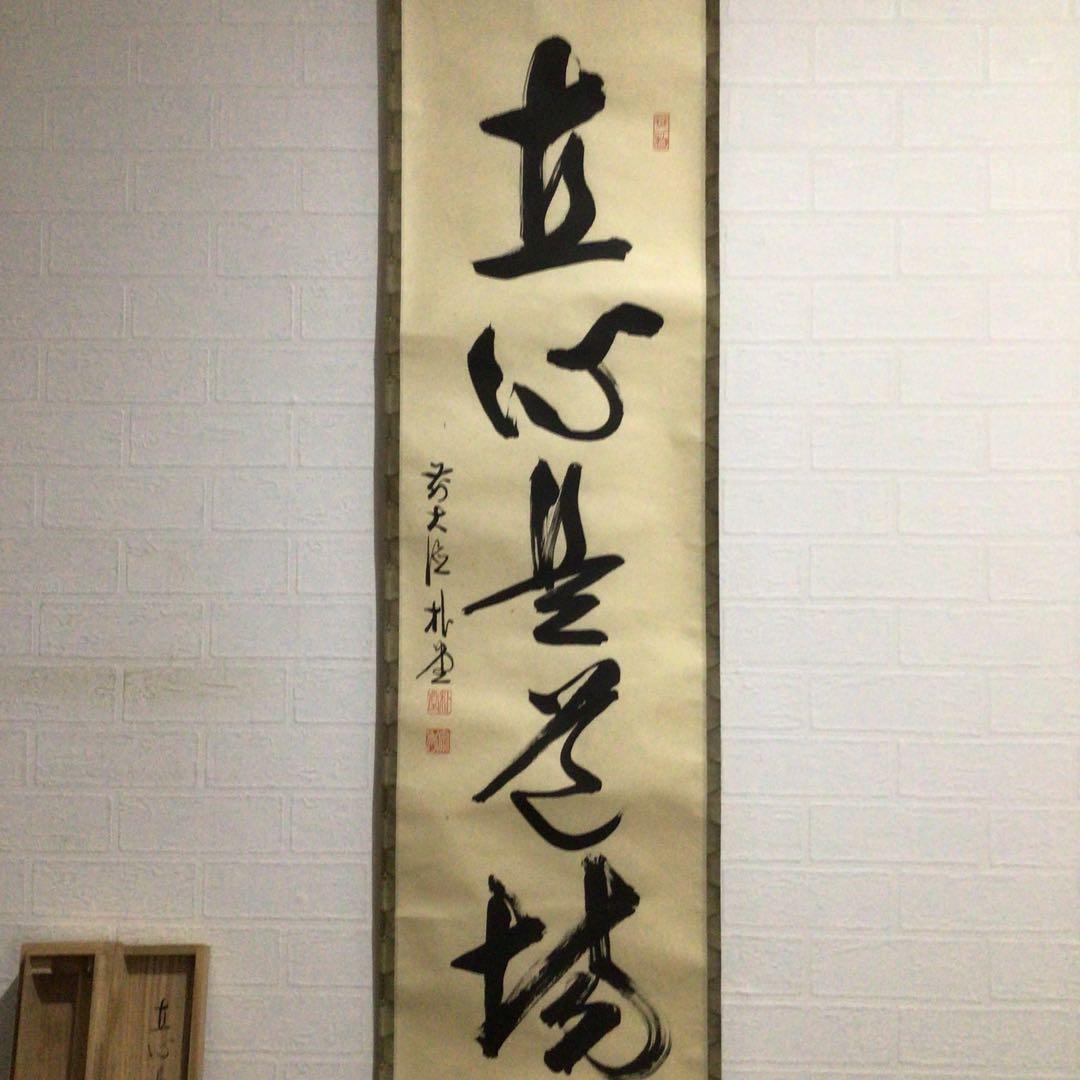 直心是道場
前大徳 朴堂
直心